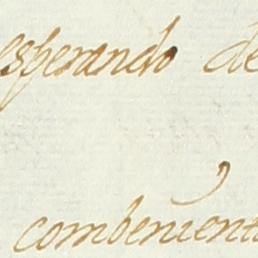 esperando de
combenient